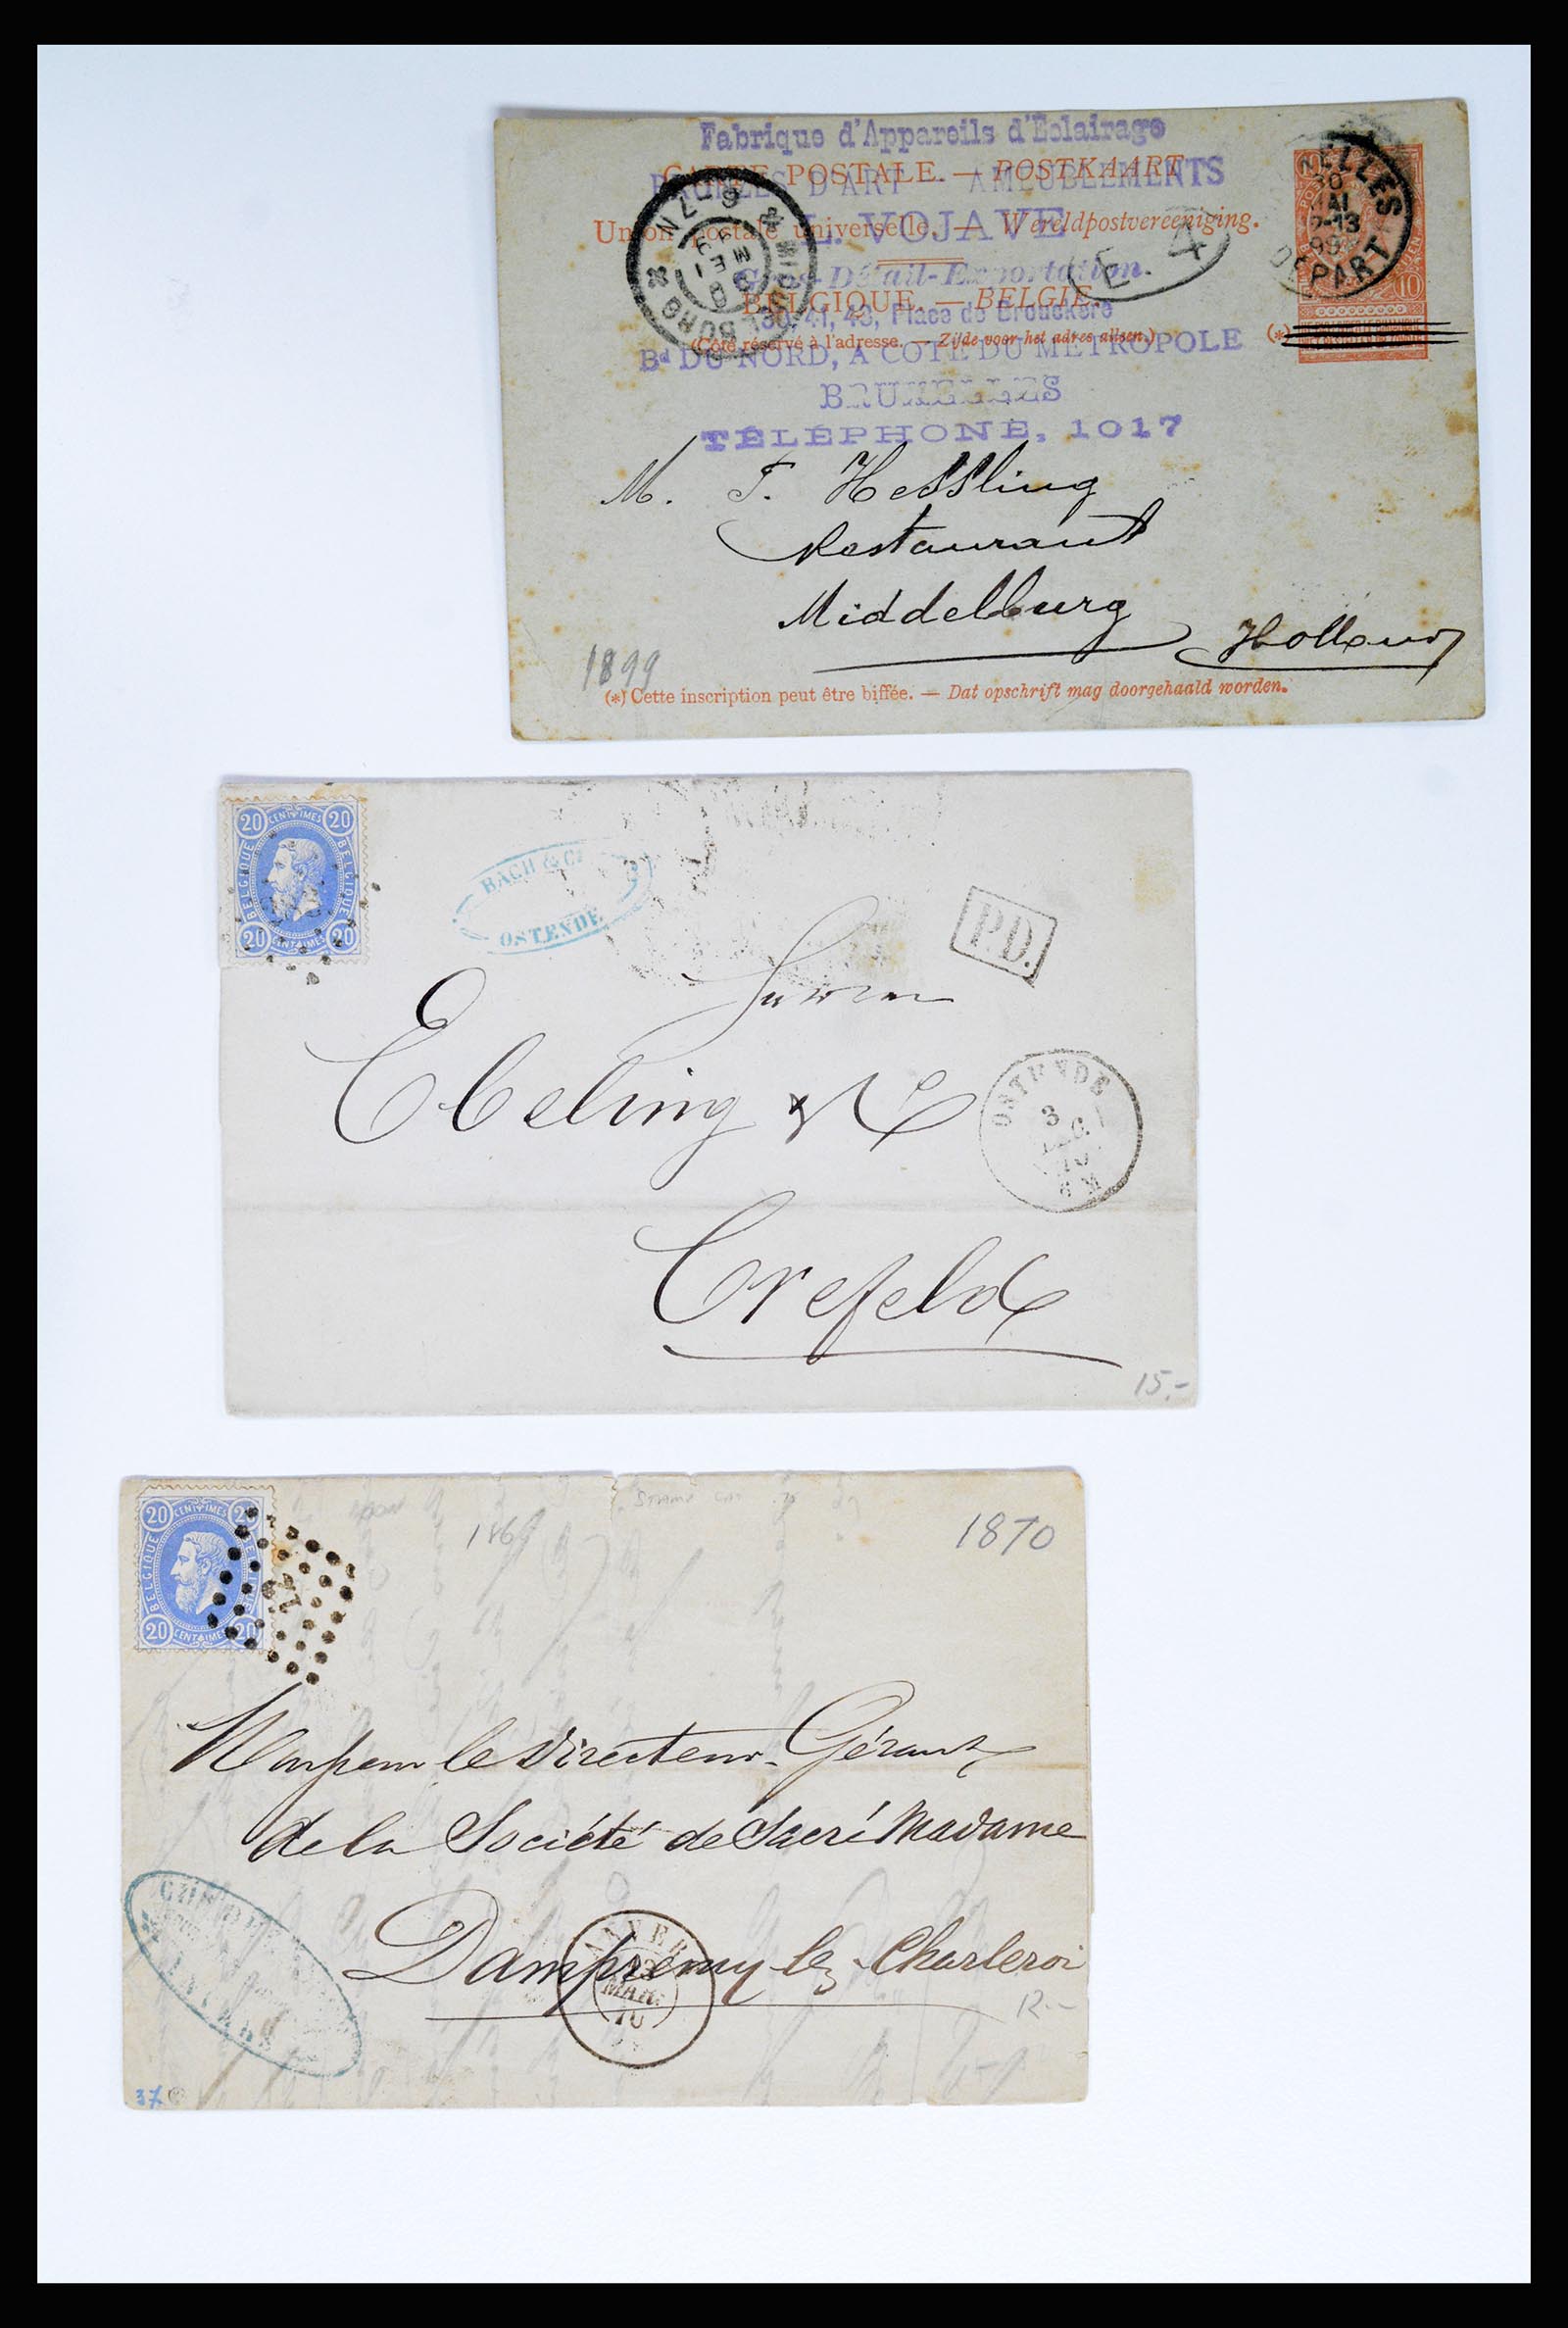 Fabrique d'Appareils d'Eclairage
CARTE POSTALE. — POSTKAART
D'ART AMEUBLEMENTS
Union postale universelle. — Wereldpostvereeniging.
L. VOJAVE
Gros-Détail-Exportation
BELGIQUE. — BELGIE.
39, 41, 43, Place de Brouckère
(Côté réservé à l'adresse. — Zijde voor het adres alleen.)
Bd DU NORD, A COTÉ DU METROPOLE
BRUXELLES
TÉLÉPHONE, 1017
E. 4
10
DEPART
99
(*)
M. F. Hessling
Restaurant
Middelburg
Holland
1899
(*) Cette inscription peut être biffée. — Dat opschrift mag doorgehaald worden.
20 CENTIMES 20
BELGIQUE
BELGIQUE
20 CENTIMES 20
BACH & Cie
OSTENDE
P.D.
Herren
Ebeling & Co
OSTENDE
3
Crefeld
15.-
20 CENTIMES 20
BELGIQUE
20 CENTIMES 20
1869
1870
Monsieur le Directeur-Gérant
de la Société de Sacré Madame
Dampremy lez Charleroi
ANVERS
MAR.
70
12.-
37